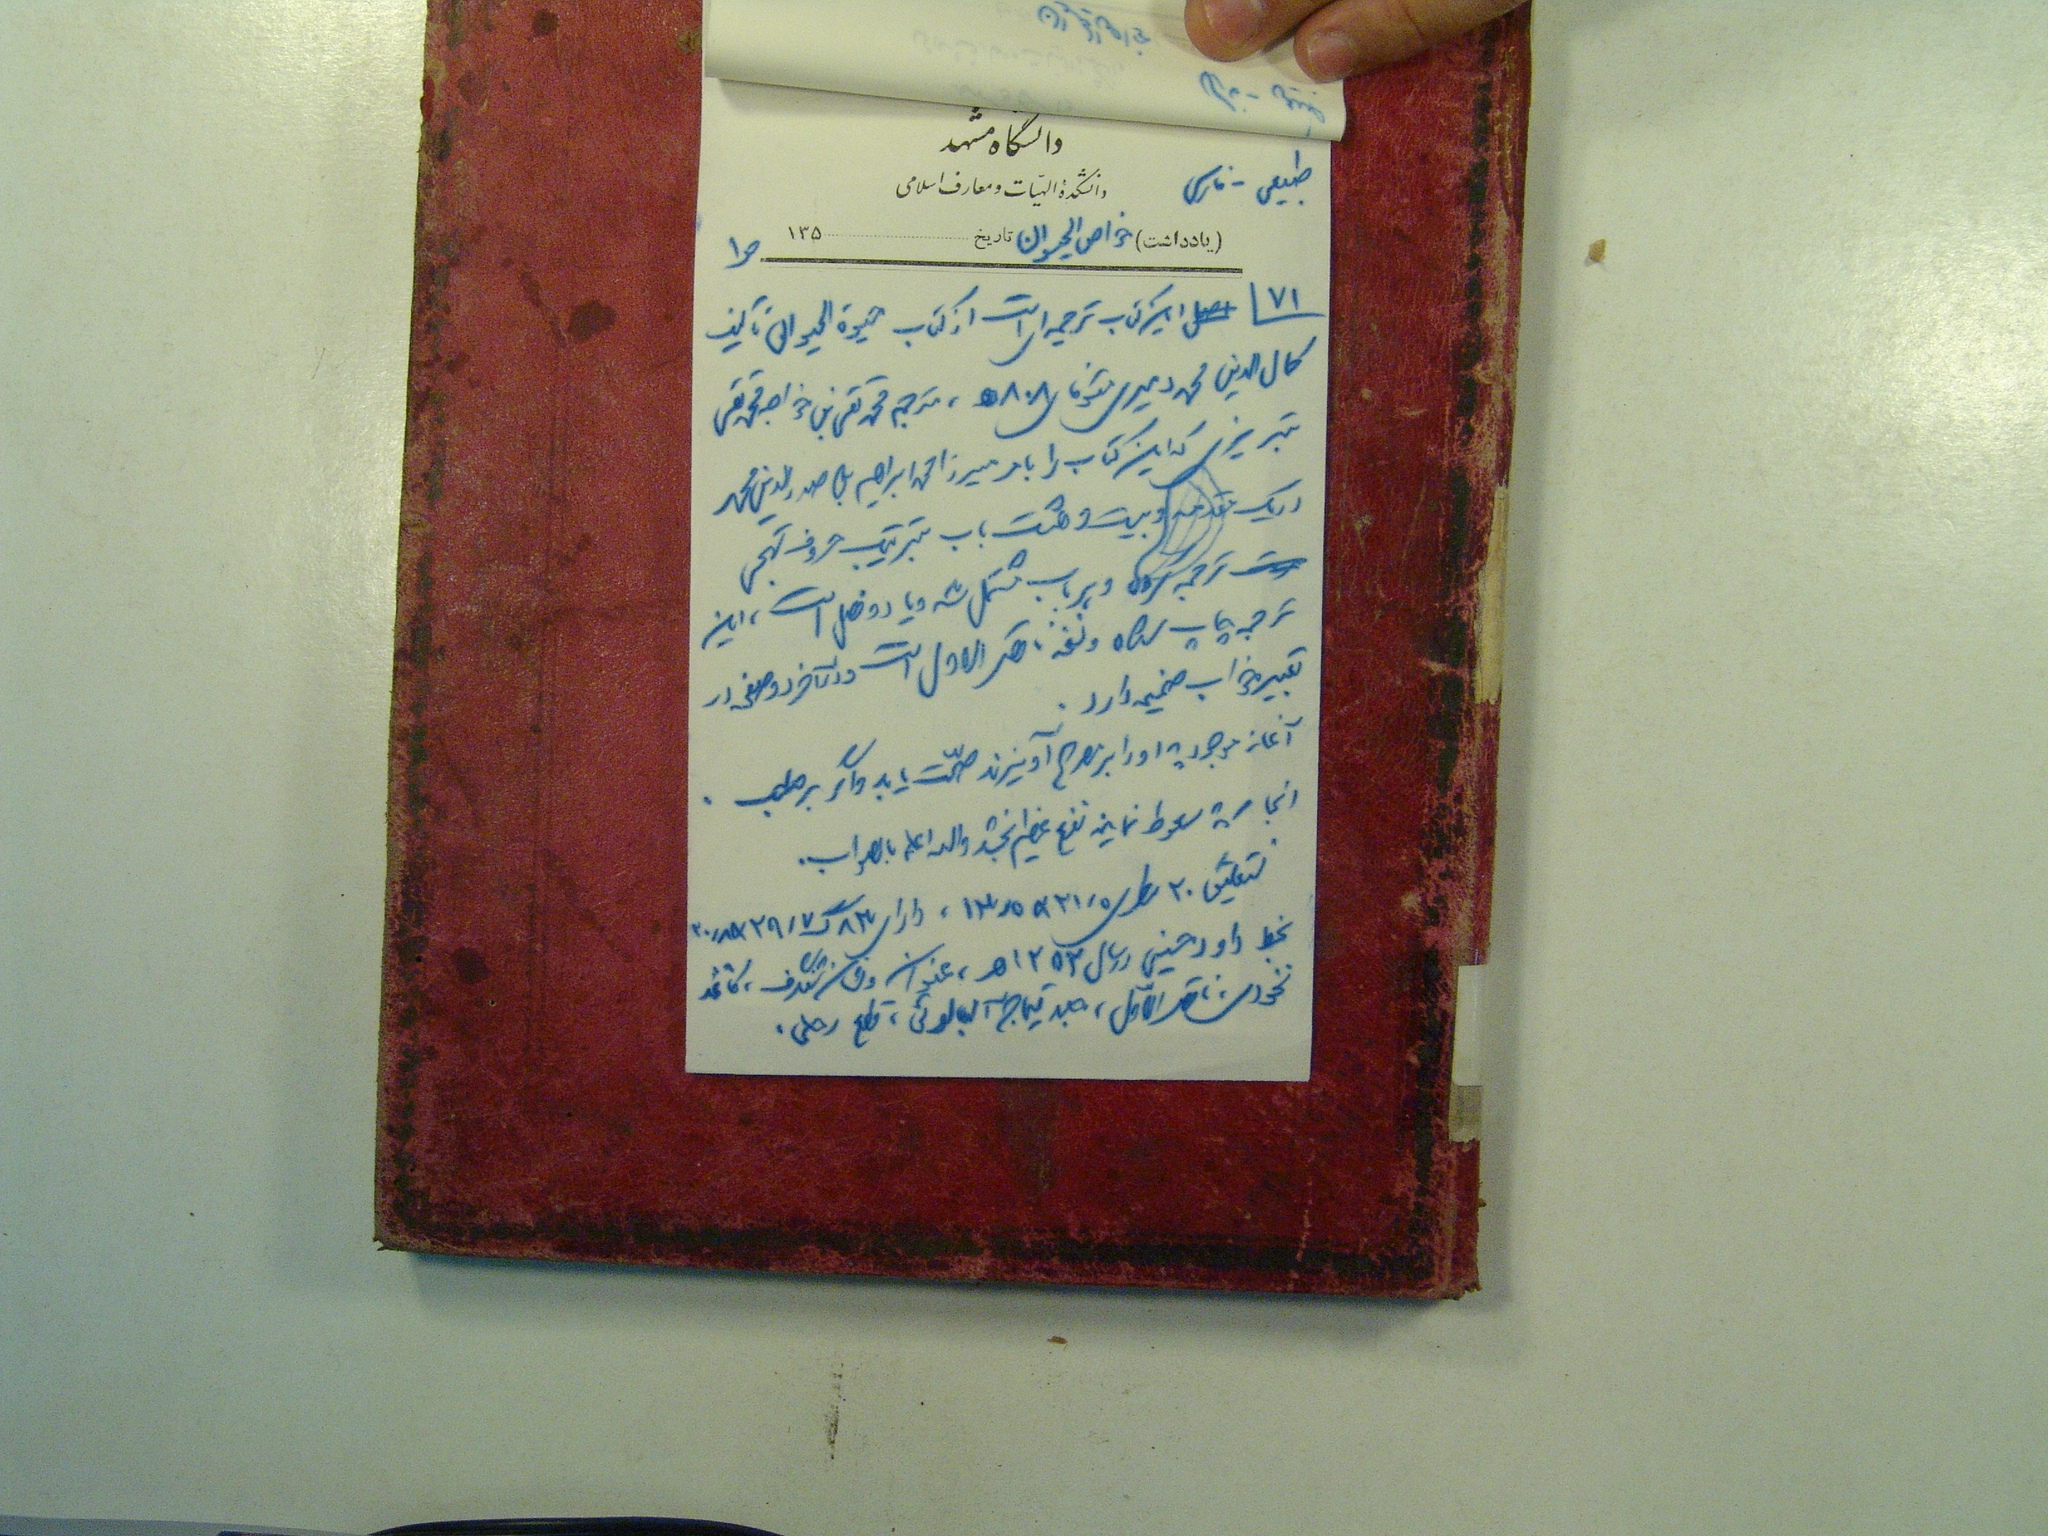 دانشگاه مشهد
دانشکدهٔ الهیات و معارف اسلامی
طبیعی - فارسی
(یادداشت) خواص الحیوان تاریخ ۱۳۵
ص۱
۷۱ اصل این کتاب ترجمه‌ای است از کتاب حیوة الحیوان تألیف
کمال الدین محمد دمیری متوفای ۸۰۸ه‍ ، مترجم محمد تقی بن خواجه محمد تقی
تبریزی که این کتاب را بامر میرزا محمد ابراهیم بن صدرالدین محمد
در یک مقدمه و بیست و هشت باب بترتیب حروف تهجی
ترجمه کرده و هر باب مشتمل شده و یا دو فصل است ، این
ترجمه چاپ شده و نسخه ناقص الاول است و در آخر دو صفحه در
تعبیر خواب ضمیمه دارد .
آغاز موجود: او را بر مصروع آویزند صحت یابد و اگر بر .
انجام: سعوط نمایند نفع عظیم بخشد والله اعلم بالصواب .
نستعلیق ۲۰ سطری ، دارای ۸۳ برگ
بخط داود حسینی در سال ۱۲۵۳ه‍ ، عنوان و نشان شنگرف ، کاغذ
نخودی ، ناقص الاول ، جلد تیماج آلبالوئی ، قطع رحلی .